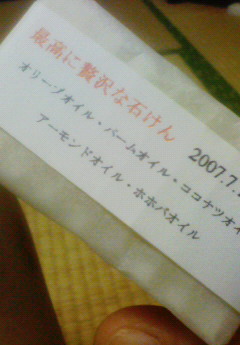 最高に贅沢な石けん
2007.7.
オリーブオイル・パームオイル・ココナツオイ
アーモンドオイル・ホホバオイル